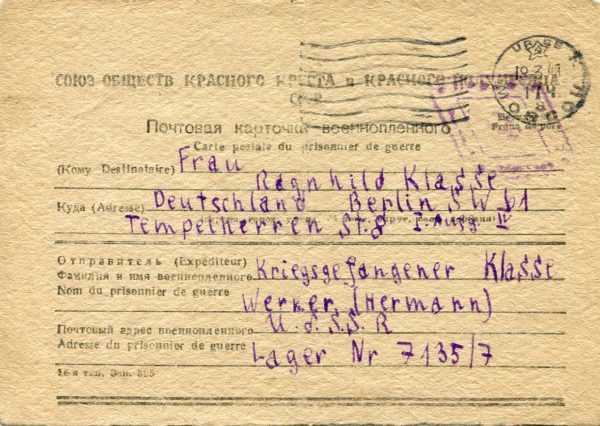 СОЮЗ ОБЩЕСТВ КРАСНОГО КРЕСТА и КРАСНОГО ПОЛУМЕСЯЦА
СССР
Почтовая карточка военнопленного
Carte postale du prisonnier de guerre
(Кому Destinataire) Frau
Ragnhild Klasse
Куда (Adresse) Deutschland Berlin SW 61
Tempelherren St. 8 I. Aufg. IV
Отправитель (Expéditeur)
Фамилия и имя военнопленного Kriegsgefangener Klasse
Nom du prisonnier de guerre
Werner (Hermann)
U.d.S.S.R
Почтовый адрес военнопленного
Adresse du prisonnier de guerre Lager Nr 7135/7
16-я тип. Зак. 895